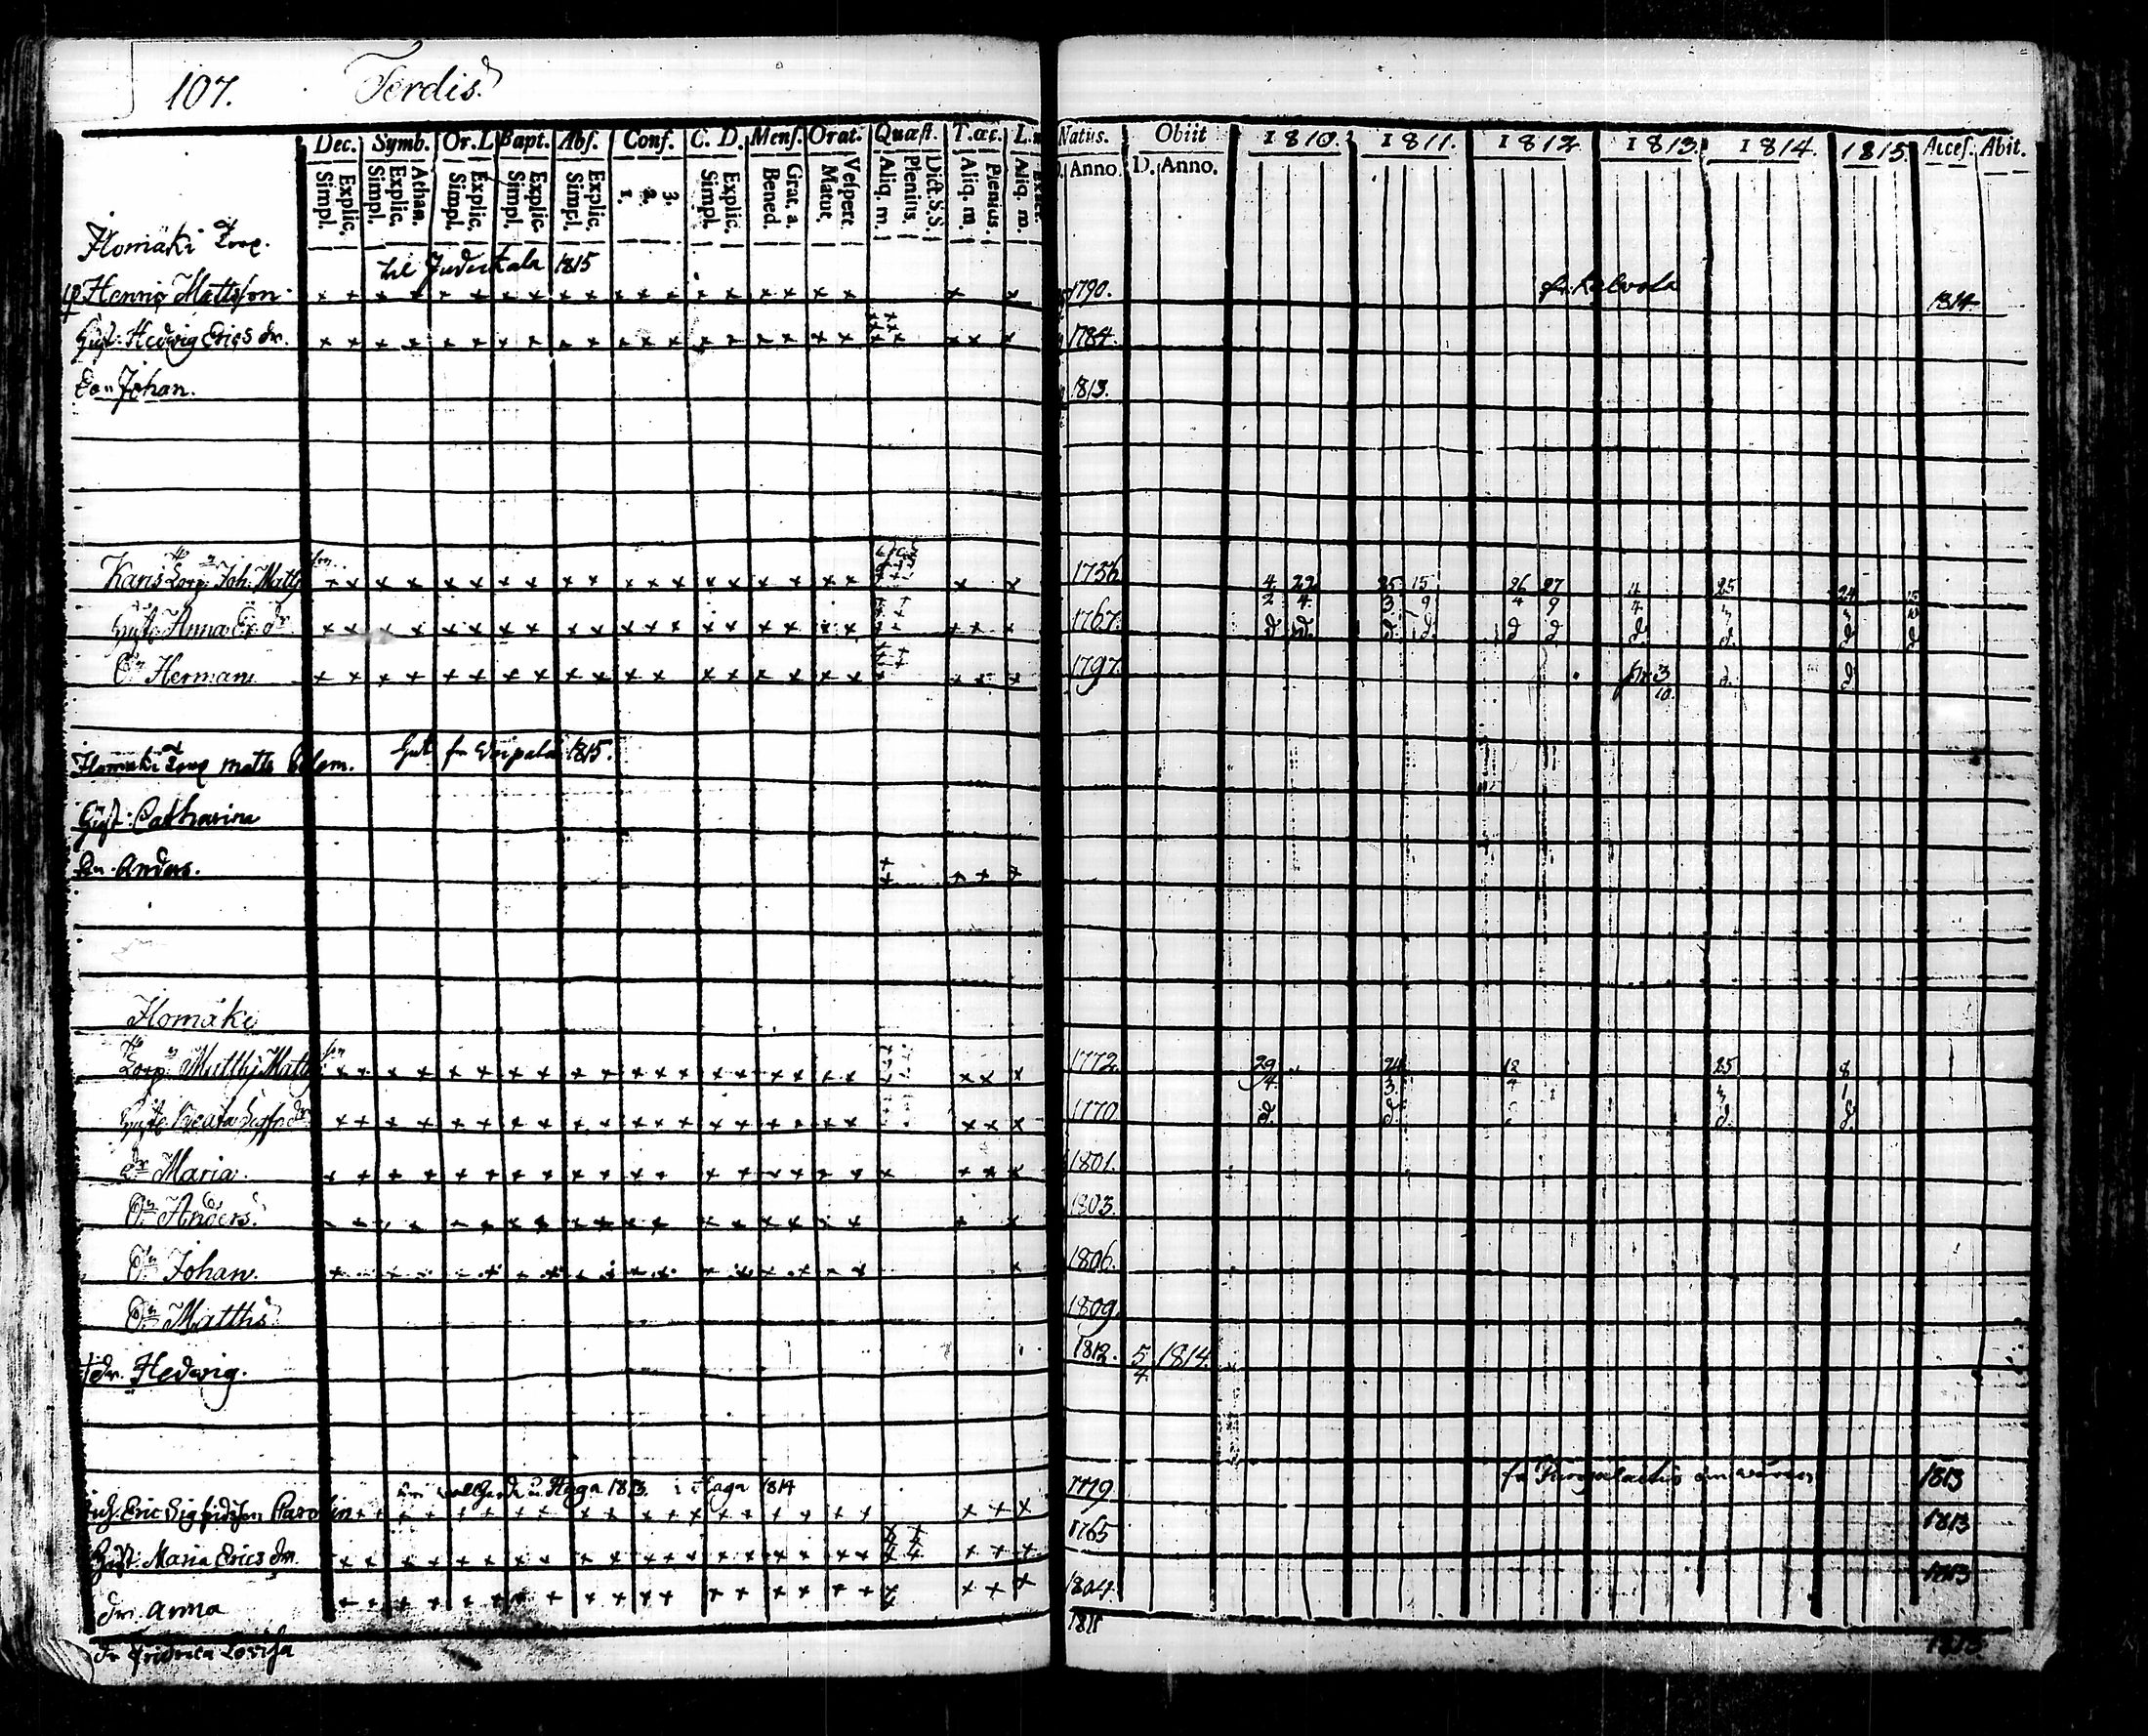 107. Terdis
Dec. Symb. Or.D. Bapt. Abs. Conf. C. D. Mens. Orat. Quæst. T.œc. Natus. Obiit 1810. 1811. 1812 1813. 1814. 1815. Acces. Abit.
Explic. Simpl. Athan. Explic. Simpl. Explic. Simpl. Explic. Simpl. Explic. Simpl. 3. 2. 1. Explic. Simpl. Grat. a. Bened. Vespert. Matut. Dict.S.S. Plenius. Aliq. m. Plenius. Aliq. m. Aliq. m. Anno. D. Anno.
Homäki Torp.
til 1815
Henric Mattsson 1790. fr. Kalvola 1814
Hust. Hedvig Erics dr. 1784.
Son Johan. 1813.
Karis Torp. Joh. Matts son 1756 4 22 25 15 26 27 4 25 24
2 4 3 9 4 9 4 3 3
Hust. Anna Er. dr 1767. d d. d. d. d d d. d. d d
Sn Herman 1797 3 d. d.
10.
Homäki Torp Matts fr 1815.
Hust. Catharina
Sn. Anders.
Homäki
Torp. Matths Matts son 1772. 29 24 12 25 8
4. 3. 4 3 1
Hust. Beata dr 1770 d. d. d. d.
dr Maria. 1801.
Sn Anders. 1803.
Sn Johan. 1806.
Sn Matths 1809
† dr. Hedvig. 1812. 5 1814.
4.
Haga 1813. i Haga 1814
Eric Sigfridsson 1779 fr 1813
Hust. Maria Erics dr. 1765 1813
dr. Anna 1804. 1813
dr Fridrica Lovisa 1811 1813.